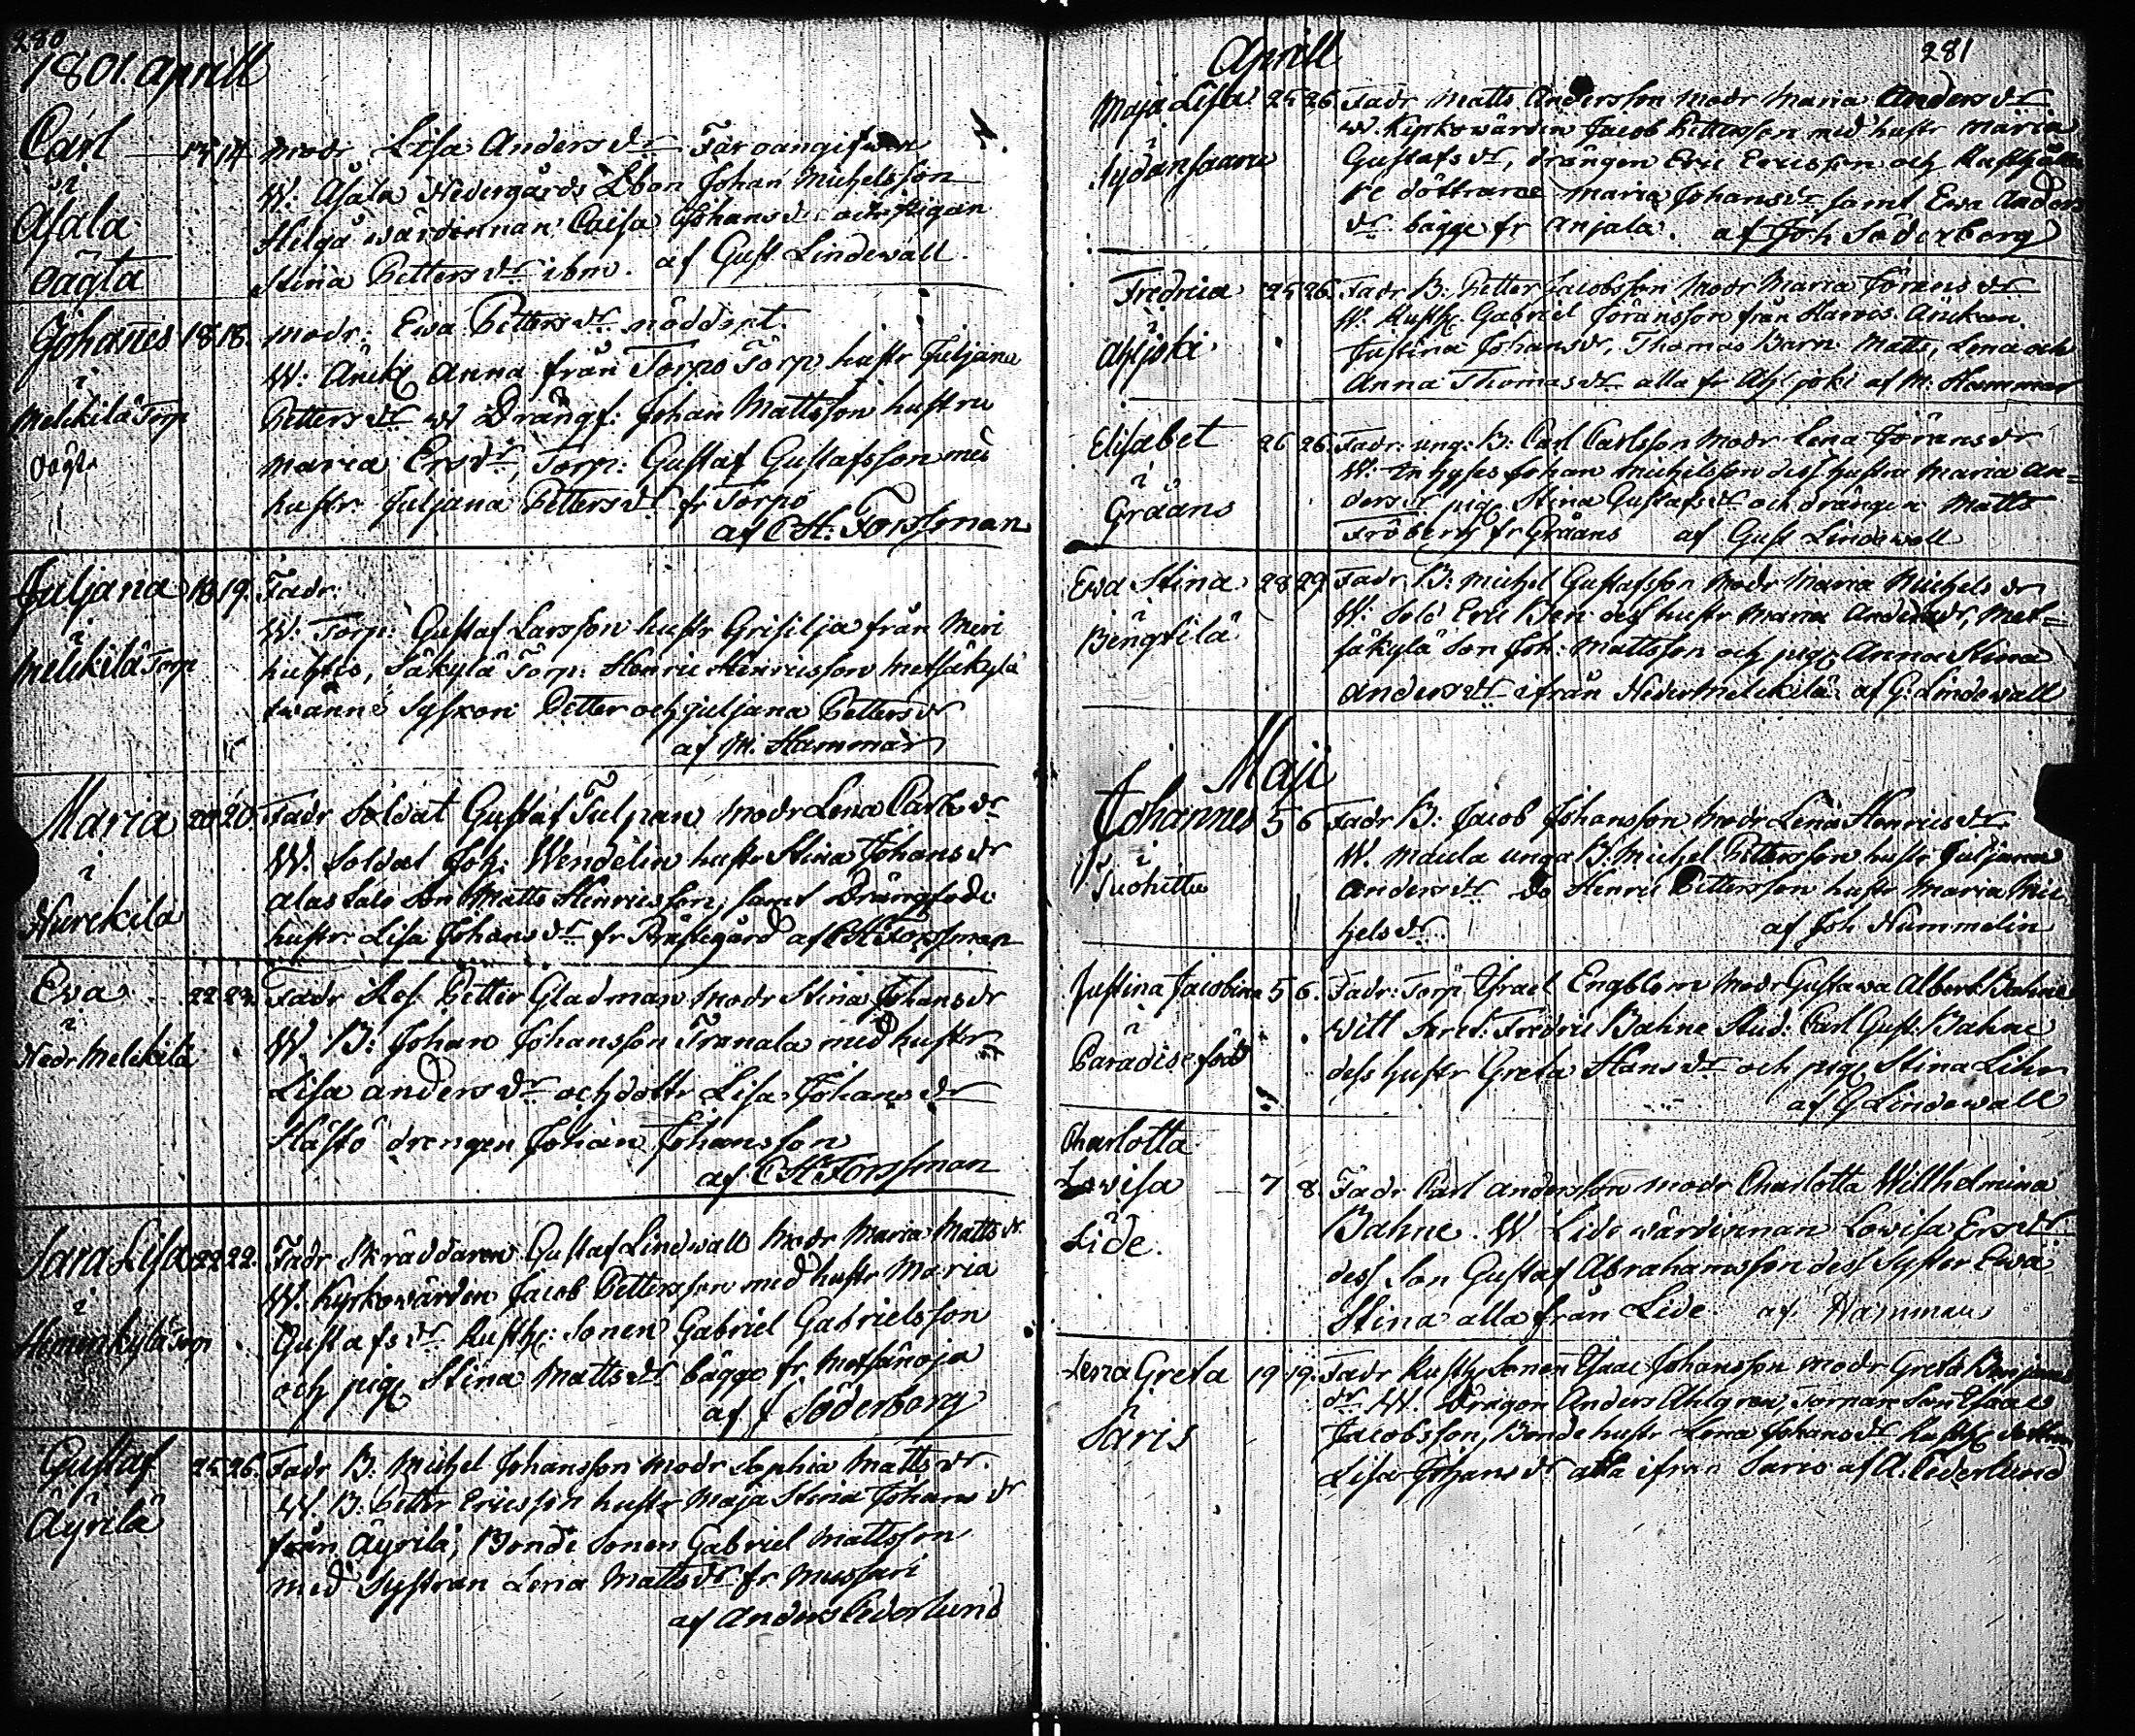 280
1801. Aprill
Carl 13 14 Modr Lisa Anders dr Far oangifwen
i W: Asala Nedergårds Lbon Johan Michelsson
Asala Helgå wärdinnan Caisa Johans dr och Pigan
oägta Stina Petters dr ibm. af Gust Lindewall
Johanes 18 18. Modr: Ewa Petters dr nöddopt.
i W: Änck Anna från Torpo Torp hustr Juljana
Melckilä Torp Petters dr W Drängf: Johan Mattsson hustru
oägt. Maria Ersdr, Torp: Gustaf Gustafsson med
hustr: Juljana Petters dr fr Torpo
af CH: Forssman
Juljana 18 19. Fadr:
i W: Torp: Gustaf Larsson hustr Grisilja från Meri
Melckilä Torp Säkylä Torp: Henric Henricsson Metsäkylä
twänne Syskon Petter och Juljana Petters dr
af M: Hammar
Maria 20 20. Fadr Soldat Gustaf Tulpan Modr Lena Carls dr
i W. Soldat Joh: Wendelin hustr Stina Johans dr
Alas Salo Son Matts Henricsson, samt
Nurckila hustr. Lisa Johans dr fr Prästegård af CH Forssman
Eva 22 23. Fadr Res Petter Gladman Modr Stina Johans dr
i W. B: Johan Johansson Tranala med hustr
Nedr Melckilä Lisa Anders dr och dottr Lisa Johans dr
Hästö drengen Johan Johansson
af CH: Forssman
Sara Lisa 22 22. Fadr Skräddaren Gustaf Lindwall Modr Maria Matts dr
W. Kyrkowärden Jacob Pettersson med hustr Maria
i Gustafs dr Rusth: Sonen Gabriel Gabrielsson
och pig Stina Matts dr bägge fr Metsänoja
af J Söderborg
Gustaf 25 26. Fadr B: Michel Johansson Modr Sophia Matts dr.
i W. B: Petter Ericsson hustr Maja Stina Johans dr
Äyrilä från Äyrilä, Bonde Sonen Gabriel Mattsson
med Systran Lena Matts dr fr Mussari
af Anders Cederlund
281
Aprill
Maja Lisa 25 26 Fadr Matts Andersson Modr Maria Anders dr
i W. Kyrkowärden Jacob Pettersson med hustr Maria
Sydänsaari Gustafs dr, drängen Eric Ericsson och Rusthålla
re döttrarne Maria Johans dr samt Ewa Anders
dr bägge fr Anjala. af Joh Söderborg
Fredrica 25 26 Fadr B: Petter Jacobsson Modr Maria Jörans dr
i W. Rusth: Gabriel Jöransson från
Ahljoki Justina Johans dr, Thomas Barn Matts, Lena och
Anna Thomas dr alla fr Ahljoki af M: Hammar
Elisabet 26 26 Fadr: ung: B: Carl Carlsson Modr Lena Jörans dr
i W: Inhyses Johan Michelsson dess hustru Maria An=
Gråäns ders dr pig Stina Gustafs dr och drängen Matts
Fröberg fr Gråäns af Gust Lindewall
Ewa Stina 28 29 Fadr B: Michel Gustafsson Modr Maria Michels dr
i W: Sold Eric Ben dess hustr Maria Anders dr, Met=
Bengtilä säkylä Son Joh: Mattsson och pig Anna Stina
Anders dr ifrån Neder Melckilä af G: Lindewall
Maji
Johannes 5 6 Fadr B: Jacob Johansson Modr Lena Henrics dr
i W. Maula unga B: Michel Pettersson hustr Juljana
Anders dr do Henric Pettersson hustr Maria Mic
hels dr. af Joh Nummelin
Justina Jacobina 5 6. Fadr: Torp Israel Engblom Modr Gustawa Albert Bahne
i Witt Secret: Fredric Bahne Stud: Carl Gust: Bahne
dess hustr Greta Hans dr och pig Stina
af G Lindewall
Charlotta
Lowisa 7 8. Fadr Carl Andersson Modr Charlotta Willhelmina
i Bahne. W Lide wärdinnan Lowisa Ersdr
Lide. dess Son Gustaf Abrahamsson dess Syster Ewa
Stina alla från Lide. af Hammar
Lena Greta 19 19. Fadr Rusth Sonen Isaac Johansson Modr Greta Benjams
i dr. W. Dragon Anders Ahlgren, Torpare Son Isaac
Säris Jacobsson, Bonde hustr Lena Johans dr Rusth dottren
Lisa Johans dr alla ifrån Säris af A. Cederlund